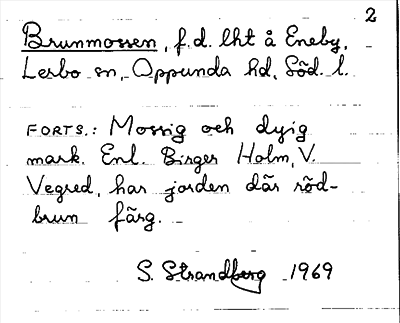 2
Brunmossen, f.d. lht å Eneby,
Lerbo sn, Oppunda hd, Söd. l.
FORTS.: Mossig och dyig
mark. Enl. Birger Holm, V.
Vegred, har jorden där röd-
brun färg.
S. Strandberg 1969